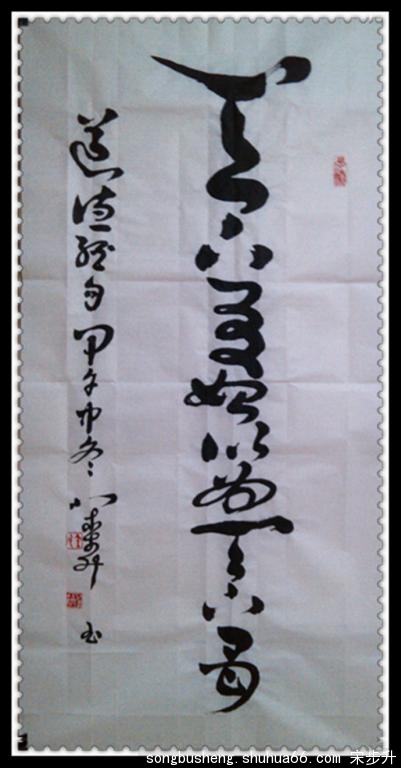 天下有始以为天下母
道德经句 甲午中冬 宋步升 书
songbusheng.shuhua66.com 宋步升